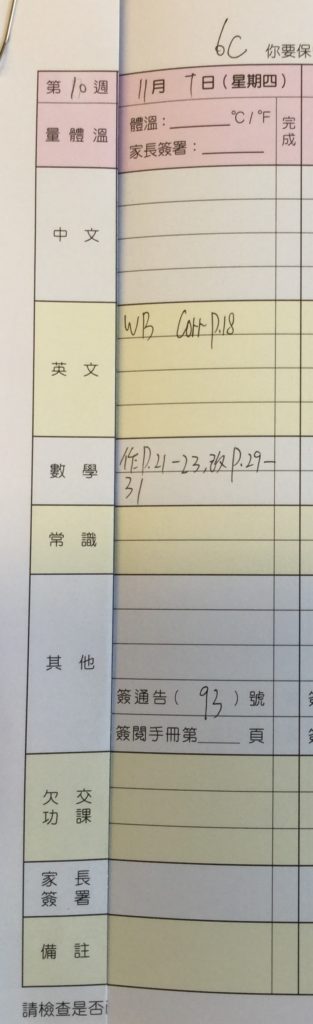 6C 你要保
第10週 11月7日(星期四)
量體溫 體溫：______°C/°F 完成
家長簽署：______
中文
英文 WB Corr P.18
數學 作P.21-23,改P.29-
31
常識
其他
簽通告( 93 )號
簽閱手冊第____頁
欠交功課
家長簽署
備註
請檢查是否